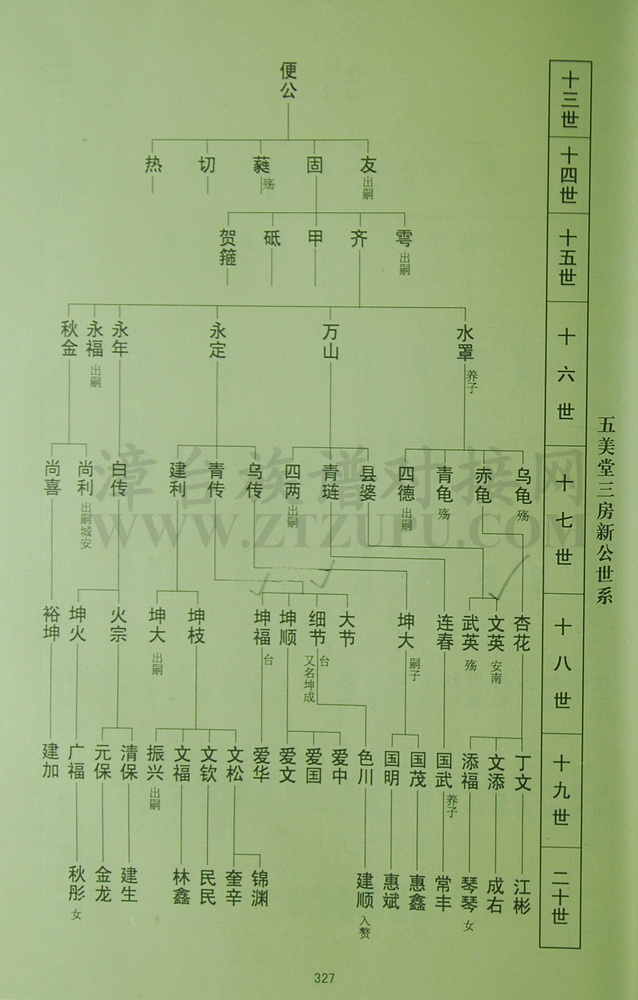 五美堂三房新公世系
十三世
便公
十四世
友
出嗣
固
蕤
殇
切
热
十五世
雩
出嗣
齐
甲
砥
贺箍
十六世
水罩
养子
万山
永定
永年
永福
出嗣
秋金
十七世
乌龟
殇
赤龟
青龟
殇
四德
出嗣
县婆
青琏
四两
出嗣
乌传
青传
建利
白传
尚利
出嗣城安
尚喜
十八世
杏花
文英
安南
武英
殇
连春
坤大
嗣子
大节
细节
台
又名坤成
坤顺
坤福
台
坤枝
坤大
出嗣
火宗
坤火
裕坤
十九世
丁文
文添
添福
国武
养子
国茂
国明
色川
爱中
爱国
爱文
爱华
文松
文钦
文福
振兴
出嗣
清保
元保
广福
建加
二十世
江彬
成右
琴琴
女
常丰
惠鑫
惠斌
建顺
入赘
锦渊
奎辛
民民
林鑫
建生
金龙
秋彤
女
漳台族谱对接网
WWW.ZTZUPU.COM
327